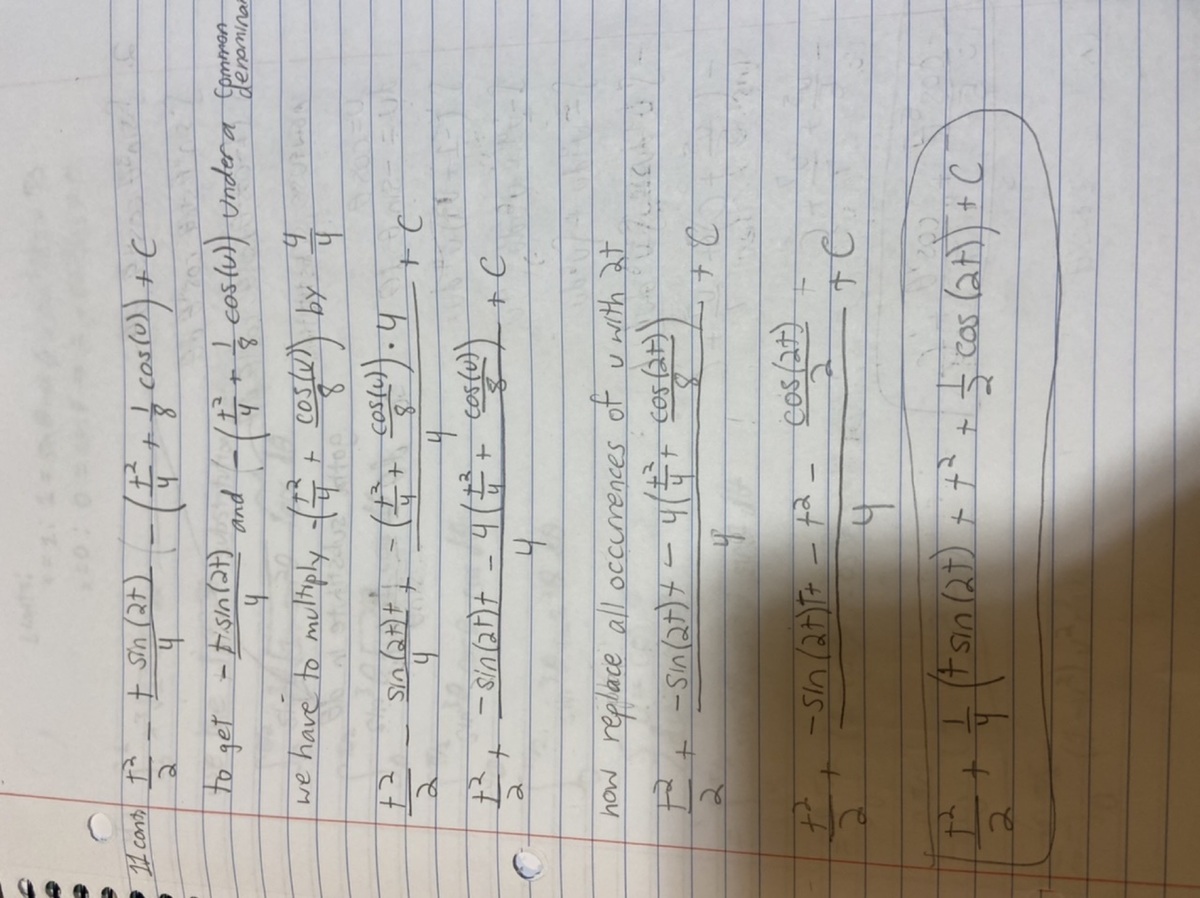 11 cont, t²/2 - t sin(2t)/4 - (t²/4 + 1/8 cos(u)) + C
to get - t sin(2t)/4 and - (t²/4 + 1/8 cos(u)) under a common
we have to multiply -(t²/4 + cos(u)/8) by 4/4
t²/2 - sin(2t)t/4 + -(t²/4 + cos(u)/8)·4/4 + C
t²/2 + (-sin(2t)t - 4(t²/4 + cos(u)/8))/4 + C
now replace all occurrences of u with 2t
t²/2 + (-sin(2t)t - 4(t²/4 + cos(2t)/8))/4 + C
t²/2 + (-sin(2t)t - t² - cos(2t)/2)/4 + C
t²/2 + 1/4 (t sin(2t) + t² + 1/2 cos(2t)) + C